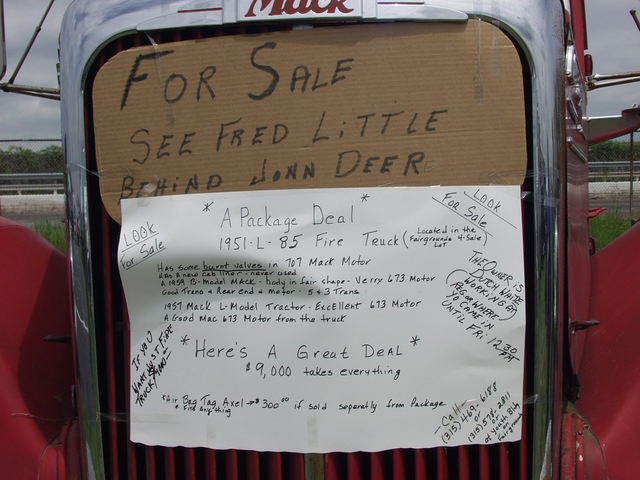 Mack
FOR SALE
SEE FRED LITTLE
BEHIND JOHN DEER
LOOK
For Sale
* A Package Deal *
1951-L-85 Fire Truck (Located in the Fairgrounds 4-Sale Lot
LOOK
For Sale
Has some burnt valves in 707 Mack Motor
Has a new cab liner - never used
A 1959 B-Model Mack - body in fair shape - Verry 673 Motor
Good Trans & Rear end & motor - 5 & 3 Trans
1957 Mack L-Model Tractor - Excellent 673 Motor
A Good Mac 673 Motor from the truck
* Here's A Great Deal *
$9,000 takes everything
*Air Bag Tag Axel → $300.00 if sold seperatly from Package
IF YOU
WANT JUST FIRE
TRUCK
THE OWNER IS
DUTCH WHITE
(WORKING AT
TO COME IN
UNTIL FRI. 12:30
PM
- Call -
(315) 469-6188
or
(315) 578-2811
or
at Youth Bldg
on
fairgrounds